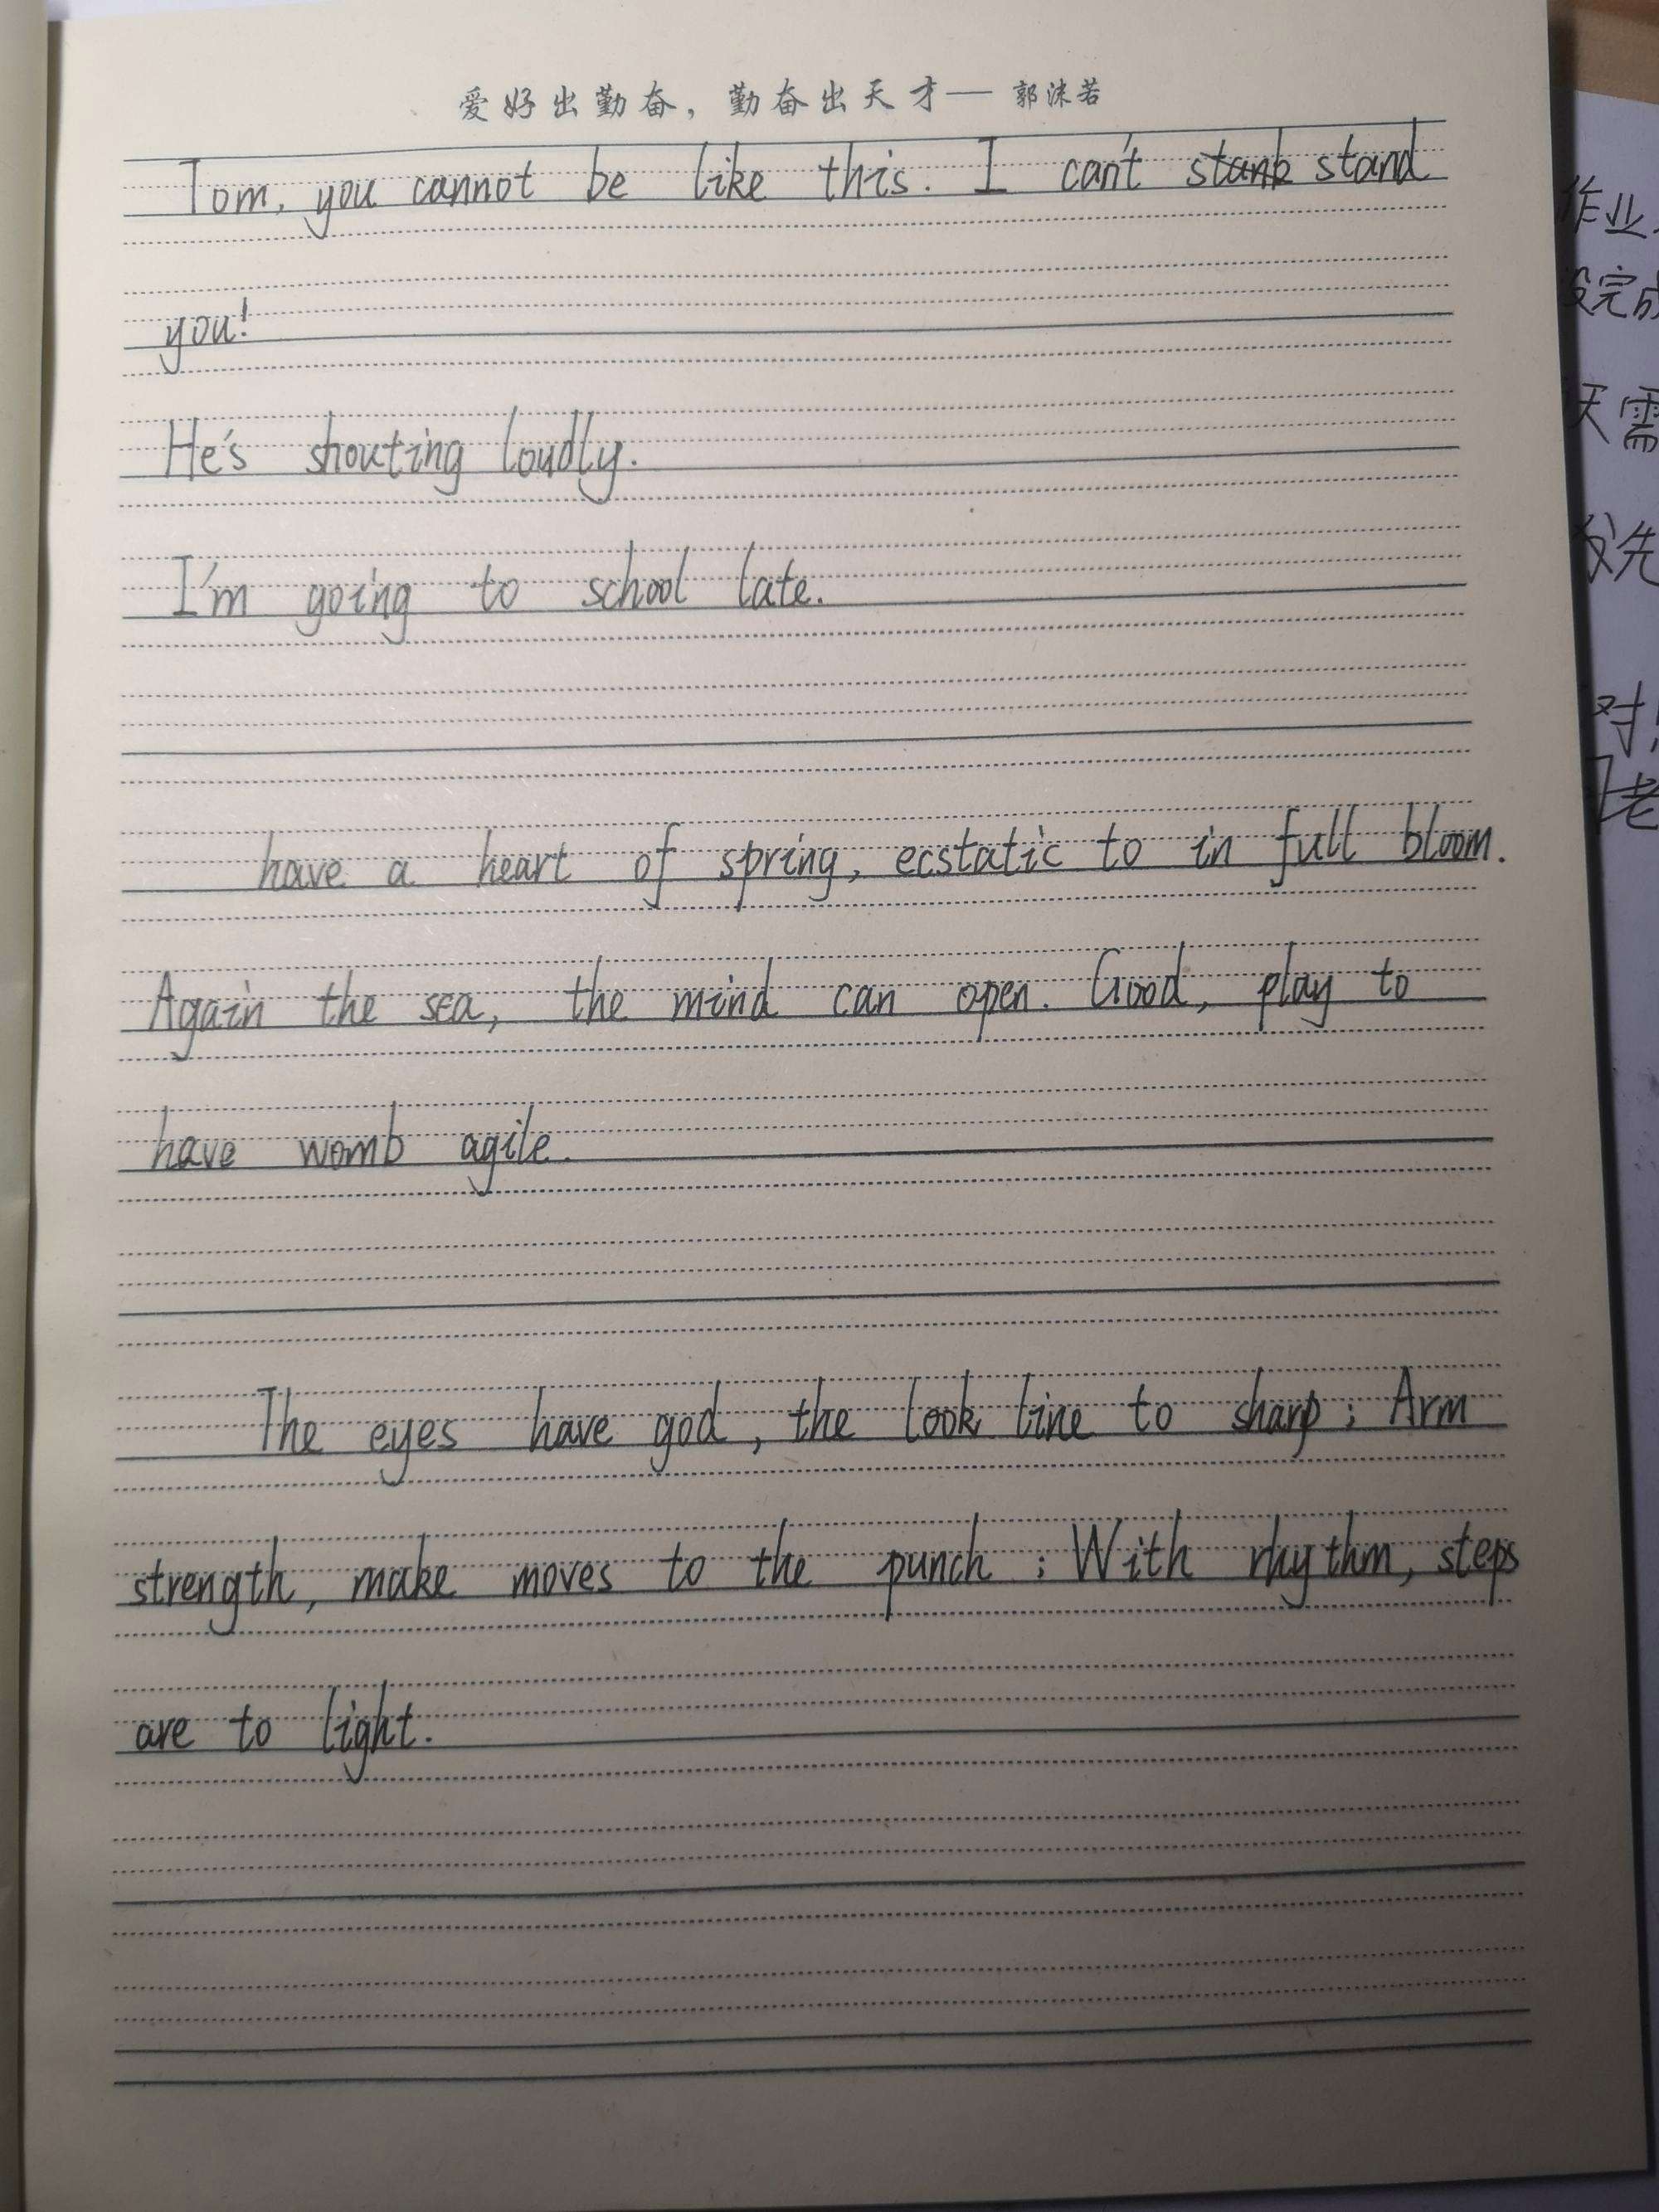 爱好出勤奋，勤奋出天才— 郭沫若
Tom, you cannot be like this. I can't stank stand
you!
He's shouting loudly.
I'm going to school late.
have a heart of spring, ecstatic to in full bloom.
Again the sea, the mind can open. Good, play to
have womb agile.
The eyes have god, the look line to sharp; Arm
strength, make moves to the punch; With rhythm, steps
are to light.
作业
没完成
天需
先
对
老